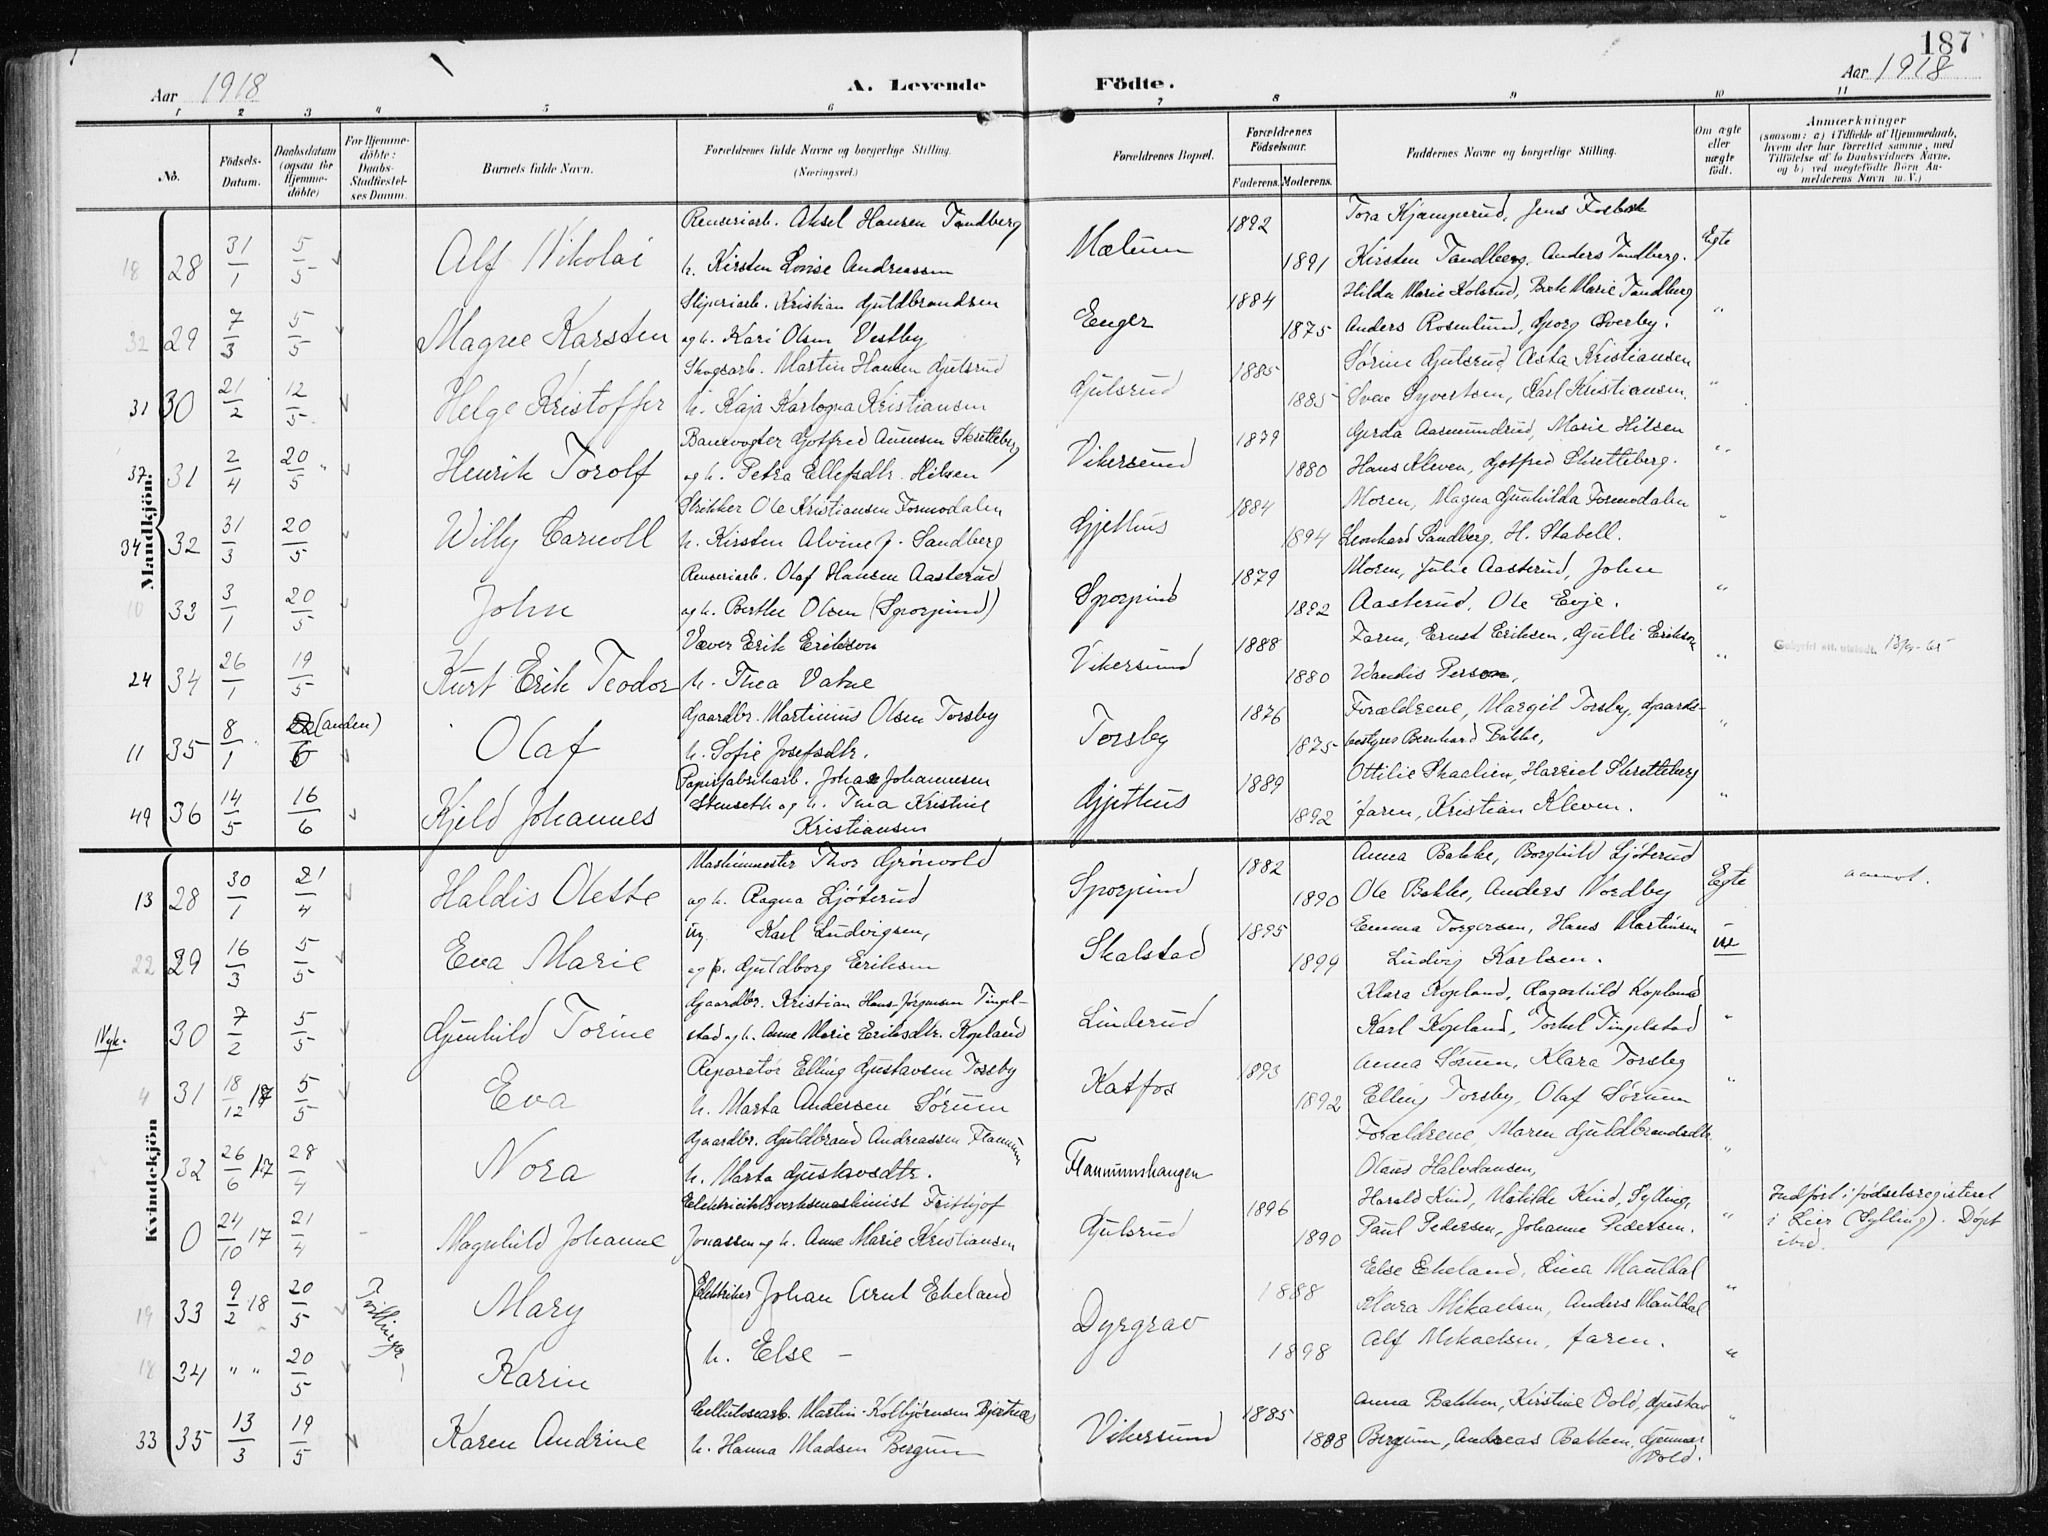 187
Aar 1918
A. Levende Födte.
Aar 1918
1 2 3 4 5 6 7 8 9 10 11
No.
Födsels-Datum.
Daabsdatum (ogsaa for Hjemmedöbte)
For Hjemmedöbte: Daabs-Stadfæstelses Datum.
Barnets fulde Navn.
Forældrenes fulde Navne og borgerlige Stilling. (Næringsvei.)
Forældrenes Bopæl.
Forældrenes Födselsaar.
Faderens. Moderens.
Faddernes Navne og borgerlige Stilling.
Om ægte eller uægte födt.
Anmærkninger
(saasom: a) i Tilfælde af Hjemmedaab, hvem der har forrettet samme, med Tilföielse af to Daabsvidners Navne, og b) ved uegtefödte Börn Anmelderens Navn m. V.)
Mandkjön.
18 28 31/1 5/5 Alf Nikolai
Renseriarb. Aksel Hansen Tandberg
h. Kirsten Lovise Andreassen
Mælum 1892 1891
Tora Kjæmperud, Jens Fosbak
Kirsten Tandberg, Anders Tandberg.
Egte
32 29 7/3 5/5 Magne Karsten
Sliperiarb. Kristian Guldbrandsen
og h. Kari Olsen Vestby
Enger 1884 1875
Hilda Marie Kolsrud, Berte Marie Tandberg
Anders Rosenlund, Georg Overby.
"
31 30 21/2 12/5 Helge Kristoffer
Skogsarb. Martin Hansen Gulsrud
h. Kaja Karlogna Kristiansen
Gulsrud 1885 1885
Sørine Gulsrud, Asta Kristiansen
Sven Syvertsen, Karl Kristiansen.
"
37 31 2/4 20/5 " Henrik Torolf
Banevogter Gotfred Amusen Skretteberg
og h. Petra Ellefsdtr. Hilsen
Vikersund 1879 1880
Gerda Aasmundrud, Marie Hilsen
Hans Kleven, Gotfred Skretteberg.
"
34 32 31/3 20/5 Willy Carnoll
Strikker Ole Kristiansen Formodalen
h. Kirsten Alvine J. Sandberg
Gjethus 1884 1894
Moren, Magna Gunhilda Formodalen
Leonhard Sandberg, H. Stabell.
"
10 33 3/1 20/5 John
Renseriarb. Olaf Hansen Aasterud
og h. Berthe Olsen (Sporpind)
Sporpind 1879 1892
Moren, Julie Aasterud, John
Aasterud, Ole Evje.
"
24 34 26/1 19/5 Kurt Erik Teodor
Væver Erik Erikson
h. Thea Vatne
Vikersund 1888 1880
Faren, Ernst Eriksen, Gulli Erikson
Wandis Person,
"
11 35 8/1 (anden) 6 Olaf
Gaardbr. Martinius Olsen Torsby
h. Sofie Josefsdtr.
Torsby 1876 1875
Forældrene, Margit Torsby, Gaards-
bestyrer Bernhard Bakke,
"
49 36 14/5 16/6 Kjeld Johannes
Papirfabrikarb. Johan Johannesen
Stenseth og h. Tina Kristine
Kristiansen
Gjethus 1889 1892
Ottilie Skaalien, Harriet Skretteberg
faren, Kristian Kleven.
"
Kvindekjön
13 28 30/1 21/4 Haldis Olette
Maskinmester Thor Grönvold
og h. Ragna Ljøterud
Sporpind 1882 1890
Anna Bakke, Borghild Ljøterud
Ole Bakke, Anders Nordby
Egte
annot.
22 29 16/3 5/5 Eva Marie
Ug. Karl Ludvigsen,
og p. Guldborg Eriksen
Skalstad 1895 1899
Emma Torgersen, Hans Martinsen
Ludvig Karlsen.
ux
Nyk. 30 7/2 5/5 Gunhild Torine
Gaardbr. Kristian Hans-Jørgensen Tingel-
stad og h. Anne Marie Eriksdtr. Kopland
Linderud
Klara Kopland, Ragnhild Kopland
Karl Kopland, Torkel Tingelstad
"
4 31 18/12 17 5/5 Eva
Reparatør Elling Gustavsen Torsby
h. Marta Andersen Sørum
Katfos 1893 1892
Anna Sørum, Klara Torsby
Elling Torsby, Olaf Sørum
"
32 26/6 17 28/4 Nora
Gaardbr. Guldbrand Andreassen Flannum
h. Marta Gustavsdtr.
Flannumshaugen
Forældrene, Maren Guldbrandsdtr.
Olaus Halvdansen,
"
0 24/10 17 21/4 - Magnhild Johanne
Elektricitetsverksmaskinist Frithjof
Jonassen og h. Anne Marie Kristiansen
Gulsrud 1896 1890
Harald Kind, Matilde Kind, Sylling,
Paul Pedersen, Johanne Pedersen.
"
Indført i fødselsregisteret
i Lier (Sylling). Døpt
ibid.
19 33 9/2 18 20/5 Tvillinger Mary
Elektriker Johan Arnt Ekeland
Dyrgrav 1888
Else Ekeland, Lina Mauldal
Klara Mikaelsen, Anders Mauldal
"
18 34 " " 20/5 - Karin
h. Else —
1898
Alf Mikaelsen, faren.
"
33 35 13/3 19/5 Karen Andrine
Cellulosearb. Martin Kolbjørnsen Bjertnæs
h. Hanna Madsen Bergum
Vikersund 1885 1888
Anna Bakken, Kirstine Vold, Gustav
Bergum, Andreas Bakken, Gunnar
Vold.
"